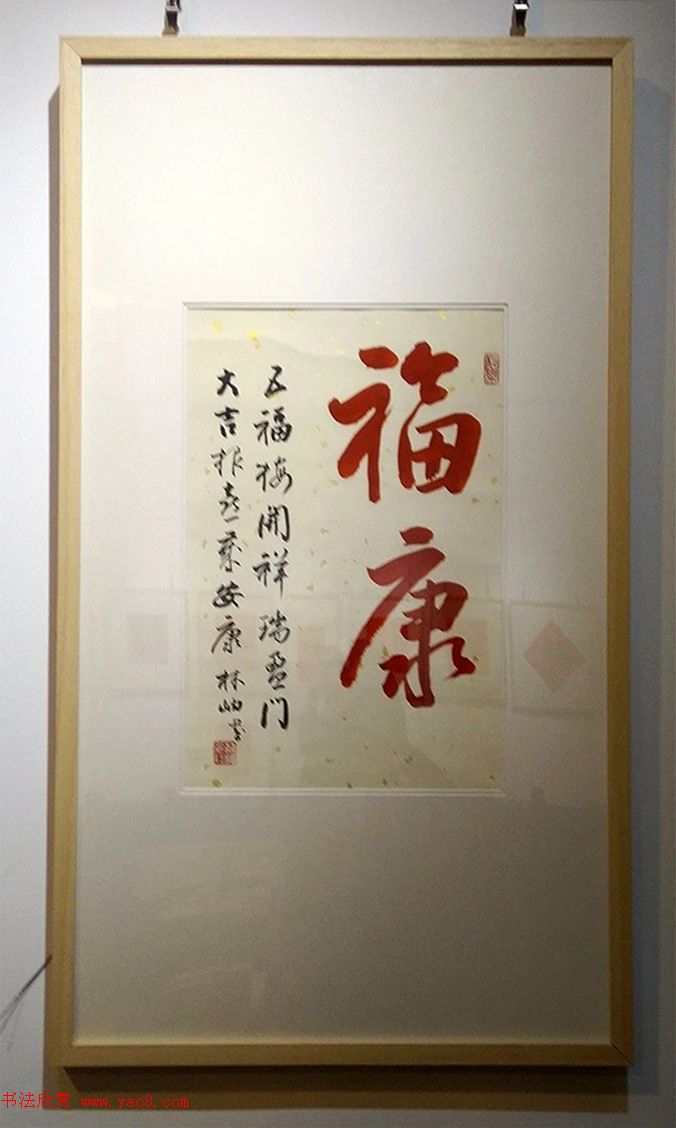 福康
五福梅开祥瑞盈门
大吉报喜万家安康 林岫
书法欣赏 www.yac8.com